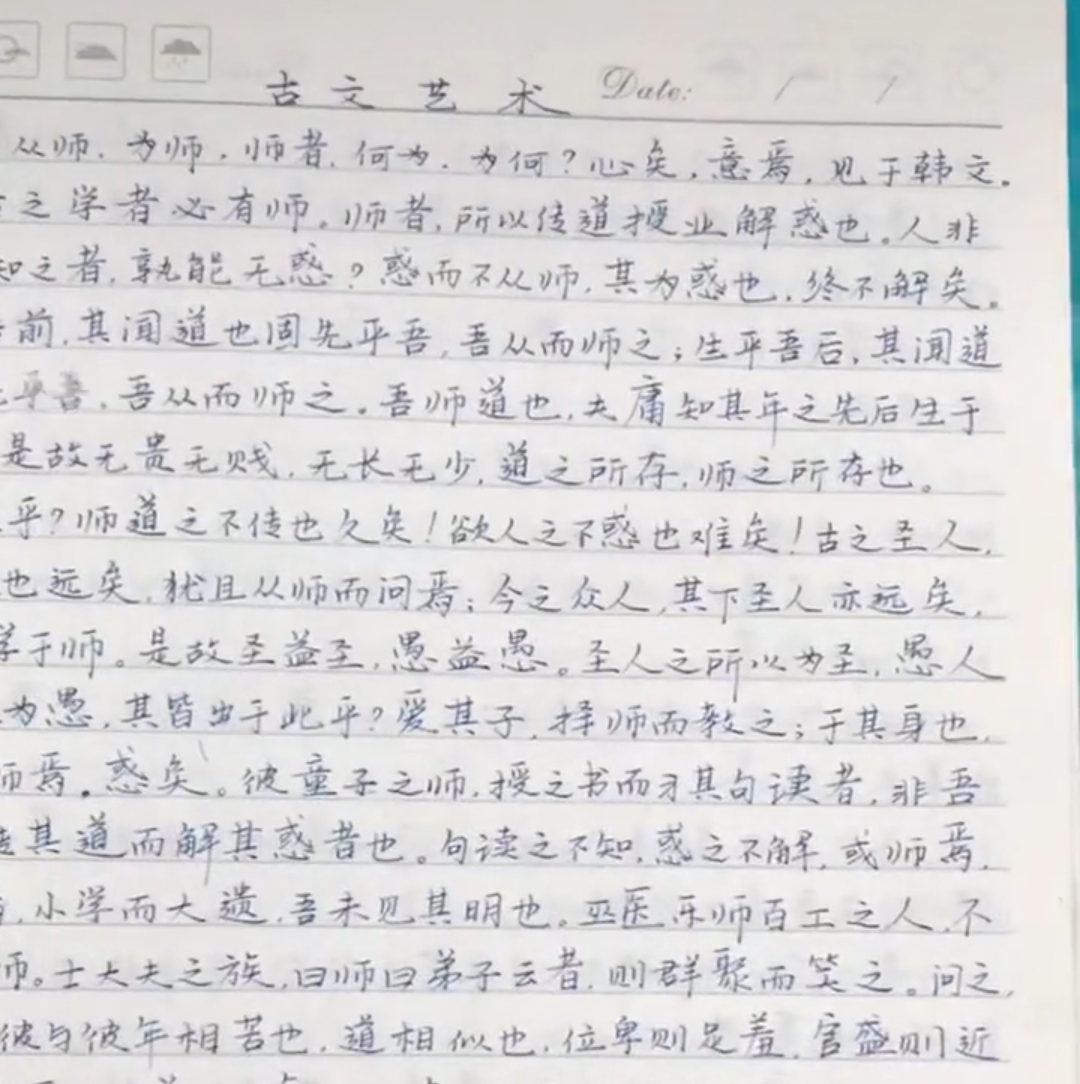 古文艺术 Date: / /
从师、为师。师者,何为,为何?心矣,意焉,见于韩文。
之学者必有师。师者,所以传道授业解惑也。人非
知之者,孰能无惑?惑而不从师,其为惑也,终不解矣。
前,其闻道也固先乎吾,吾从而师之;生乎吾后,其闻道
乎吾,吾从而师之。吾师道也,夫庸知其年之先后生于
是故无贵无贱,无长无少,道之所存,师之所存也。
乎?师道之不传也久矣!欲人之不惑也难矣!古之圣人,
也远矣,犹且从师而问焉;今之众人,其下圣人亦远矣,
学于师。是故圣益圣,愚益愚。圣人之所以为圣,愚人
为愚,其皆出于此乎?爱其子,择师而教之;于其身也,
师焉。惑矣。彼童子之师,授之书而习其句读者,非吾
其道而解其惑者也。句读之不知,惑之不解,或师焉,
,小学而大遗,吾未见其明也。巫医乐师百工之人,不
师。士大夫之族,曰师曰弟子云者,则群聚而笑之。问之,
彼与彼年相若也,道相似也,位卑则足羞,官盛则近